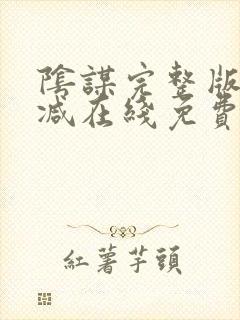 陰謀完整版
减在綫免費
紅薯芋頭